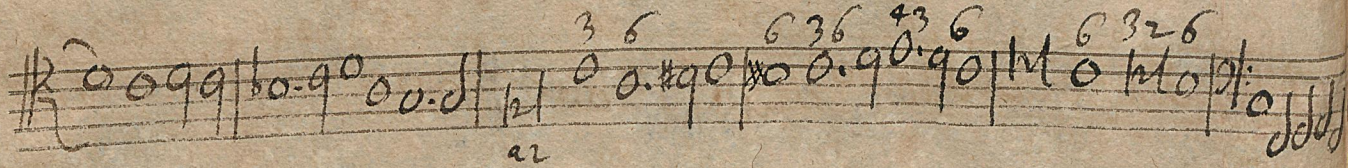 3 6 6 3 6 4 3 6 6 3 2 6
a2